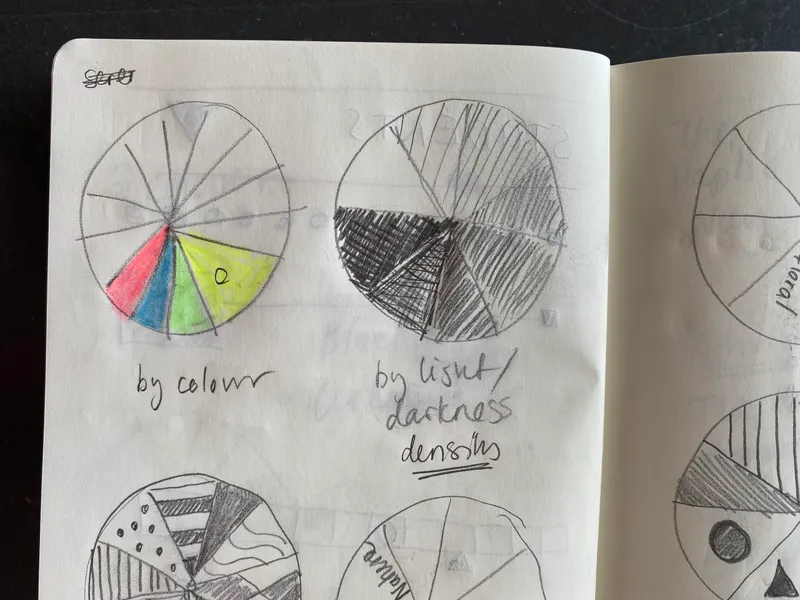 by colour
by light/
darkness
density
Nature
floral